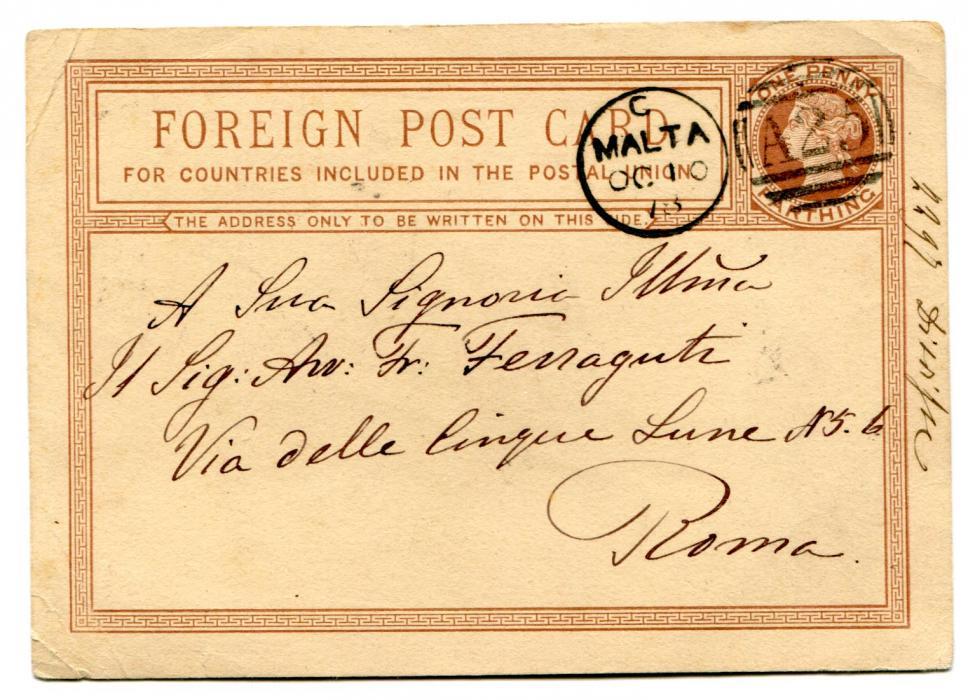 FOREIGN POST CARD
FOR COUNTRIES INCLUDED IN THE POSTAL UNION
THE ADDRESS ONLY TO BE WRITTEN ON THIS SIDE.
C
MALTA
OC 10
78
ONE PENNY
A25
FARTHING
A Sua Signoria Illma
Il Sig: Avv: Fr: Ferraguti
Via delle Cinque Lune N 5. 6
Roma.